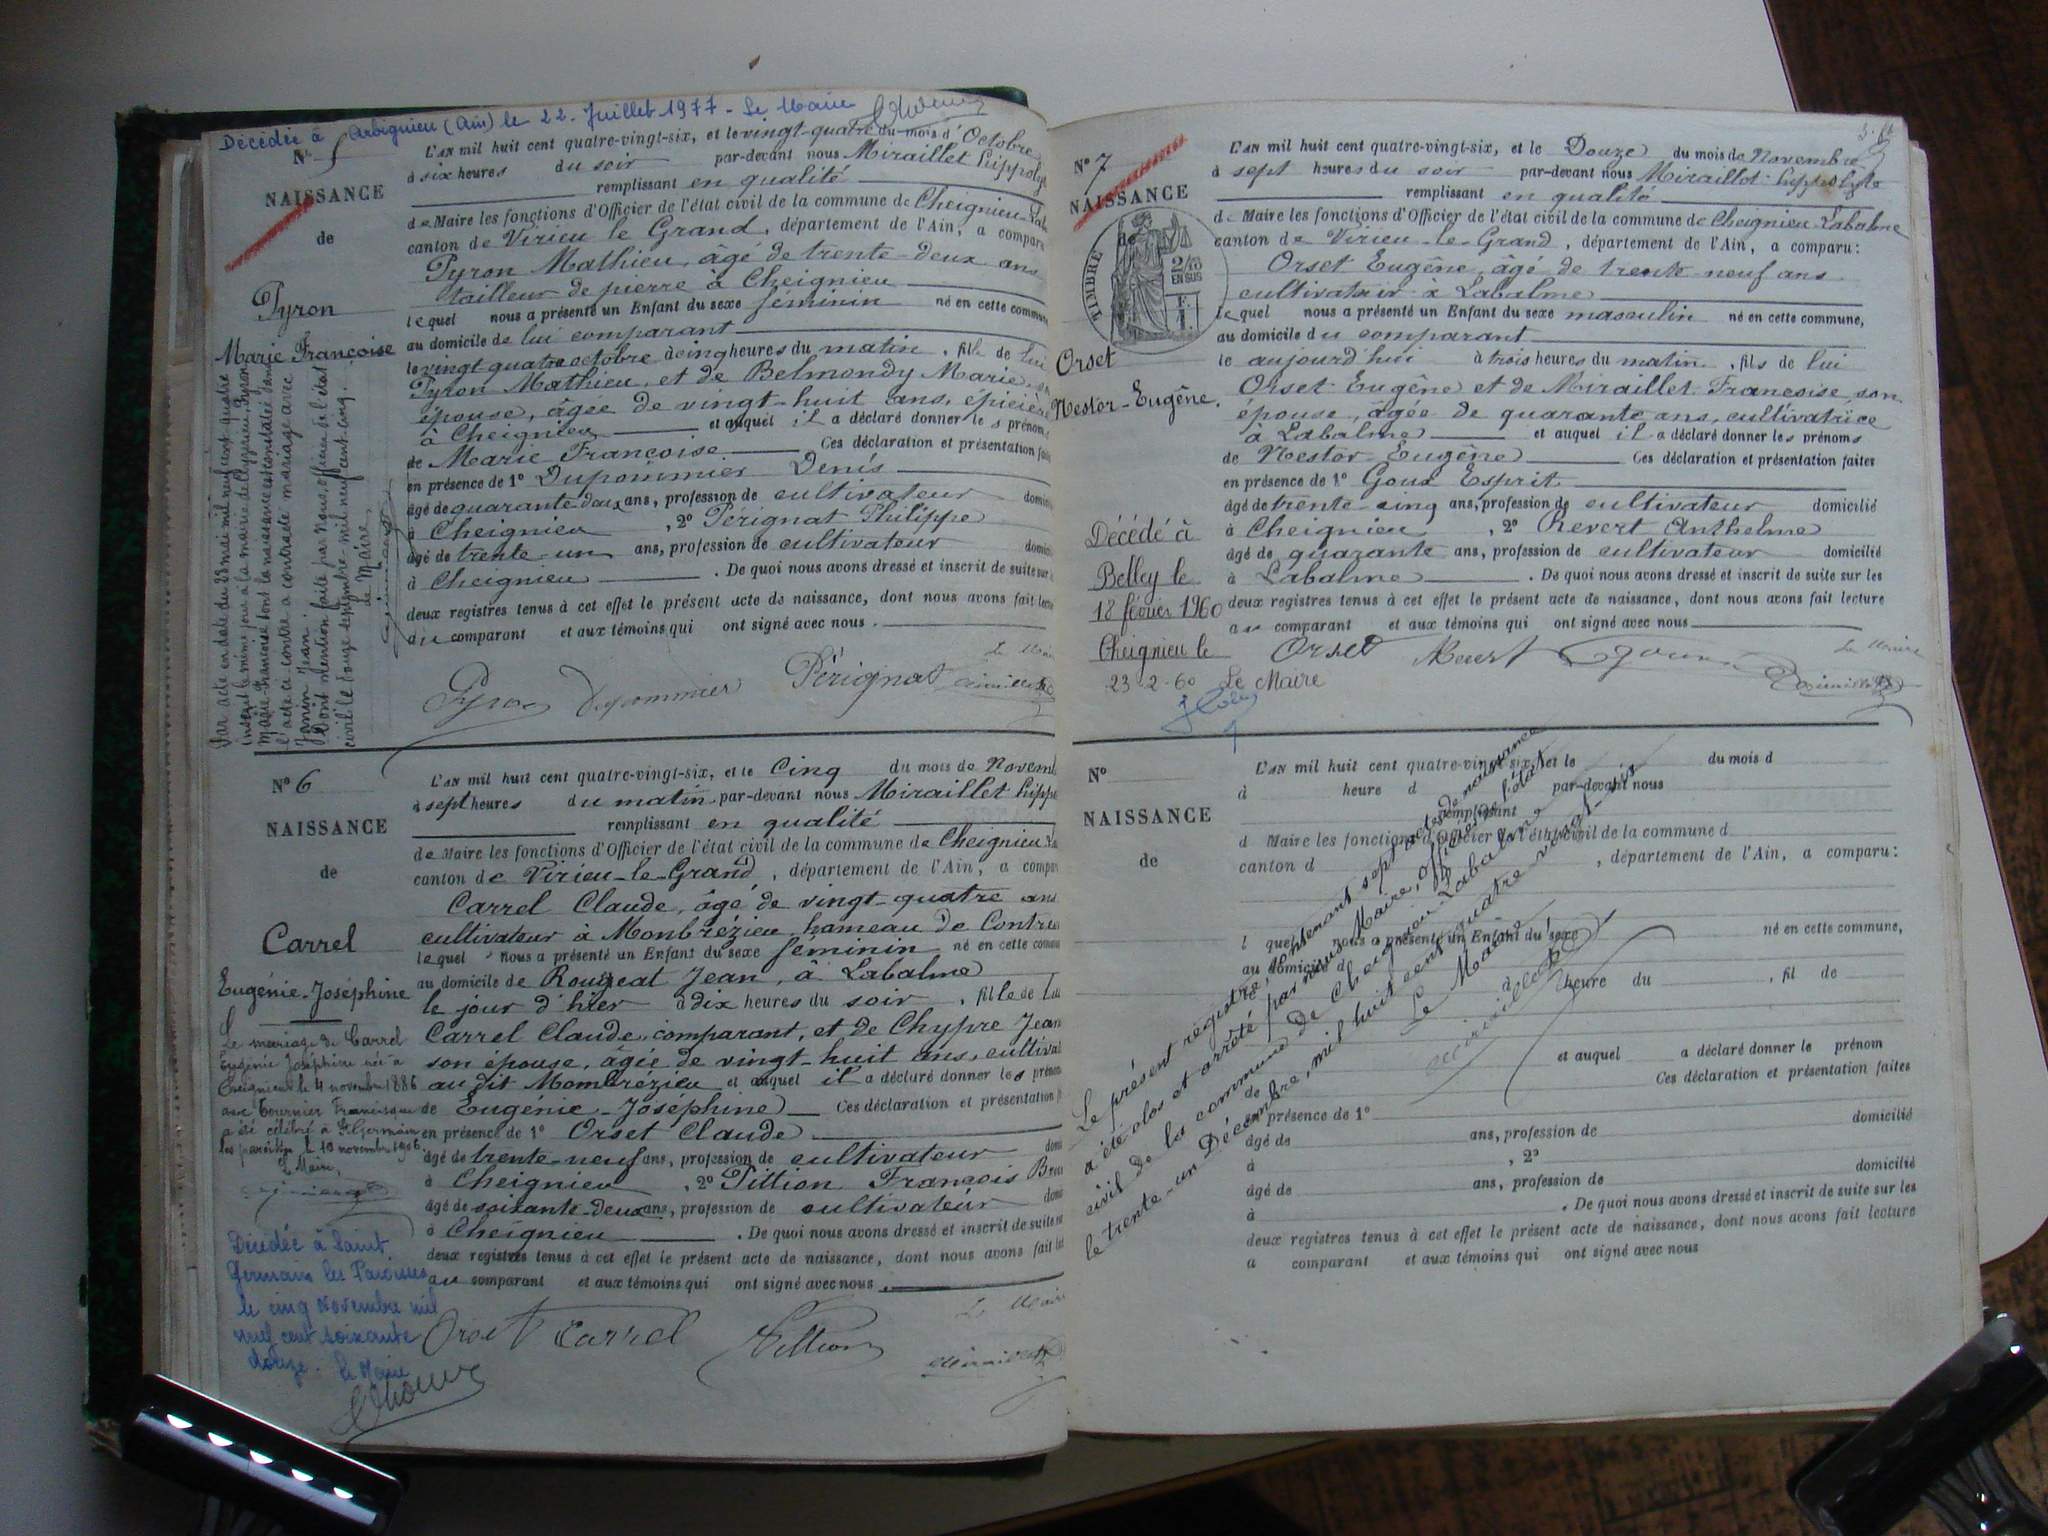 Décédée à Arbignieu (Ain) le 22 Juillet 1977 - Le Maire
N° 5
NAISSANCE
de
Pyron
Marie Françoise
Par acte en date du 23 mai mil neuf cent quatre
inscrit le même jour à la mairie de Peyzieu, Pyron
Marie-Françoise dont la naissance est constatée dans
l'acte ci contre a contracté mariage avec
Janin Jean.
Dont mention faite par Nous, officier de l'état
civil le douze septembre mil neuf cent cinq.
Le Maire,
L'AN mil huit cent quatre-vingt-six, et le vingt-quatre du mois d'Octobre
à six heures du soir par-devant nous Miraillet hippolyte
remplissant en qualité
de Maire les fonctions d'Officier de l'état civil de la commune de Cheignieu-Laba
canton de Virieu le Grand, département de l'Ain, a comparu
Pyron Mathieu, âgé de trente-deux ans
tailleur de pierre à Cheignieu
lequel nous a présenté un Enfant du sexe féminin né en cette commune
au domicile de lui comparant
le vingt quatre octobre à cinq heures du matin, fille de lui
Pyron Mathieu, et de Belmondy Marie, son
épouse, âgée de vingt-huit ans, épicière
à Cheignieu et auquel il a déclaré donner les prénoms
de Marie Françoise Ces déclaration et présentation faites
en présence de 1° Dupommier Denis
âgé de quarante deux ans, profession de cultivateur domicilié
à Cheignieu, 2° Pérignat Philippe
âgé de trente-un ans, profession de cultivateur domicilié
à Cheignieu. De quoi nous avons dressé et inscrit de suite sur les
deux registres tenus à cet effet le présent acte de naissance, dont nous avons fait lecture
au comparant et aux témoins qui ont signé avec nous.
Le Maire
Pyron Dupommier Pérignat Miraillet
N° 6
NAISSANCE
de
Carrel
Eugénie-Joséphine
Le mariage de Carrel
Eugénie Joséphine née à
Cheignieu le 4 novembre 1886
avec Tournier Francisque
a été célébré à St Germain
les paroisses le 10 novembre 1906
Le Maire,
Décédée à Saint
Germain les Paroisses
le cinq Novembre mil
neuf cent soixante
douze. Le Maire
L'AN mil huit cent quatre-vingt-six, et le Cinq du mois de Novemb
à sept heures du matin par-devant nous Miraillet hippo
remplissant en qualité
de Maire les fonctions d'Officier de l'état civil de la commune de Cheignieu La
canton de Virieu-le-Grand, département de l'Ain, a comparu
Carrel Claude, âgé de vingt-quatre ans
cultivateur à Monbrézieu hameau de Contre
lequel nous a présenté un Enfant du sexe féminin né en cette commune
au domicile de Rougeat Jean, à Labalme
le jour d'hier à dix heures du soir, fille de lui
Carrel Claude, comparant, et de Chypre Jean
son épouse, âgée de vingt-huit ans, cultiva
au dit Mombrézieu et auquel il a déclaré donner les prénoms
de Eugénie-Joséphine Ces déclaration et présentation f
en présence de 1° Orset Claude
âgé de trente-neuf ans, profession de cultivateur domi
à Cheignieu, 2° Pillion François
âgé de soixante-deux ans, profession de cultivateur domi
à Cheignieu. De quoi nous avons dressé et inscrit de suite sur
deux registres tenus à cet effet le présent acte de naissance, dont nous avons fait lec
au comparant et aux témoins qui ont signé avec nous.
Le Maire
Orset Carrel Pillion Miraillet
N° 7
NAISSANCE
de
TIMBRE
2/10
EN SUS
Orset
Nestor-Eugène.
Décédé à
Belley le
18 février 1960
Cheignieu le
23-2-60 Le Maire
L'AN mil huit cent quatre-vingt-six, et le Douze du mois de Novembre
à sept heures du soir par-devant nous Miraillet hippolyte
remplissant en qualité
de Maire les fonctions d'Officier de l'état civil de la commune de Cheignieu-Labalme
canton de Virieu-le-Grand, département de l'Ain, a comparu:
Orset Eugène, âgé de trente-neuf ans
cultivateur à Labalme
lequel nous a présenté un Enfant du sexe masculin né en cette commune,
au domicile du comparant
le aujourd'hui à trois heures du matin, fils de lui
Orset Eugène et de Miraillet Françoise son
épouse, âgée de quarante ans, cultivatrice
à Labalme et auquel il a déclaré donner les prénoms
de Nestor-Eugène Ces déclaration et présentation faites
en présence de 1° Goux Esprit
âgé de trente-cinq ans, profession de cultivateur domicilié
à Cheignieu, 2° Revert Anthelme
âgé de quarante ans, profession de cultivateur domicilié
à Labalme. De quoi nous avons dressé et inscrit de suite sur les
deux registres tenus à cet effet le présent acte de naissance, dont nous avons fait lecture
au comparant et aux témoins qui ont signé avec nous
Le Maire
Orset Revert Goux Miraillet
N°
NAISSANCE
de
L'AN mil huit cent quatre-vingt-six, et le du mois d
à heure d par-devant nous
remplissant
d Maire les fonctions d'Officier de l'état civil de la commune d
canton d , département de l'Ain, a comparu:
l quel nous a présenté un Enfant du sexe né en cette commune,
au domicile d
le à heure du , fil de
et auquel a déclaré donner le prénom
de Ces déclaration et présentation faites
en présence de 1° domicilié
âgé de ans, profession de
à , 2°
âgé de ans, profession de domicilié
à . De quoi nous avons dressé et inscrit de suite sur les
deux registres tenus à cet effet le présent acte de naissance, dont nous avons fait lecture
a comparant et aux témoins qui ont signé avec nous
Le présent registre, contenant sept actes de naissance
a été clos et arrêté par nous Maire, officier de l'état
civil de la commune de Cheignieu-Labalme
le trente-un Décembre, mil huit cent quatre vingt-six
Le Maire
Miraillet